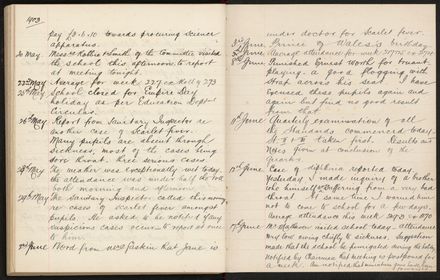 1903
pay £3-6-10 towards procuring science
apparatus.
20 May. Messrs Rollins & Smith of the Committee visited
the school this afternoon to report
at meeting tonight.
22nd May Average for week 227. on Roll 273
25th May School closed for Empire Day
holiday as per Education Dept
Circular.
26th May. Report from Sanitary Inspector re
another case of Scarlet fever.
Many pupils are absent through
sickness, most of the cases being
sore throat. Three serious cases.
The weather was exceptionally wet today,
the attendance was under half the roll
both morning and afternoon.
29th May. The Sanitary Inspector called this morning
re case of Scarlet fever amongst
pupils. He asked to be notified if any
suspicious cases occur to report at once
to him.
2nd June Word from Mrs that Jane is
under doctor for Scarlet fever.
3rd June Prince of Wales's birthday.
5th June Average attendance for week
8th June Punished Ernest Worth for truant-
playing. a good flogging with
strap across his seat. I have
excused these pupils again and
again but find no good result
from that.
11th June Quarterly examination of all
the Standards commenced today.
St I & II taken first. Results and
notes from at conclusion of the
quarter.
12th June Case of diptheria reported today.
Yesterday I made inquiry of a brother
who himself is suffering from a very bad
throat. At same time I warned him
not to come to school for a few days.
Average attendance this week
17th June Mr visited school today. Attendance
very low owing chiefly to sickness. Suggestion
made that the school be fumigated during the holiday
notified by Chairman that meeting is postponed for
a week.